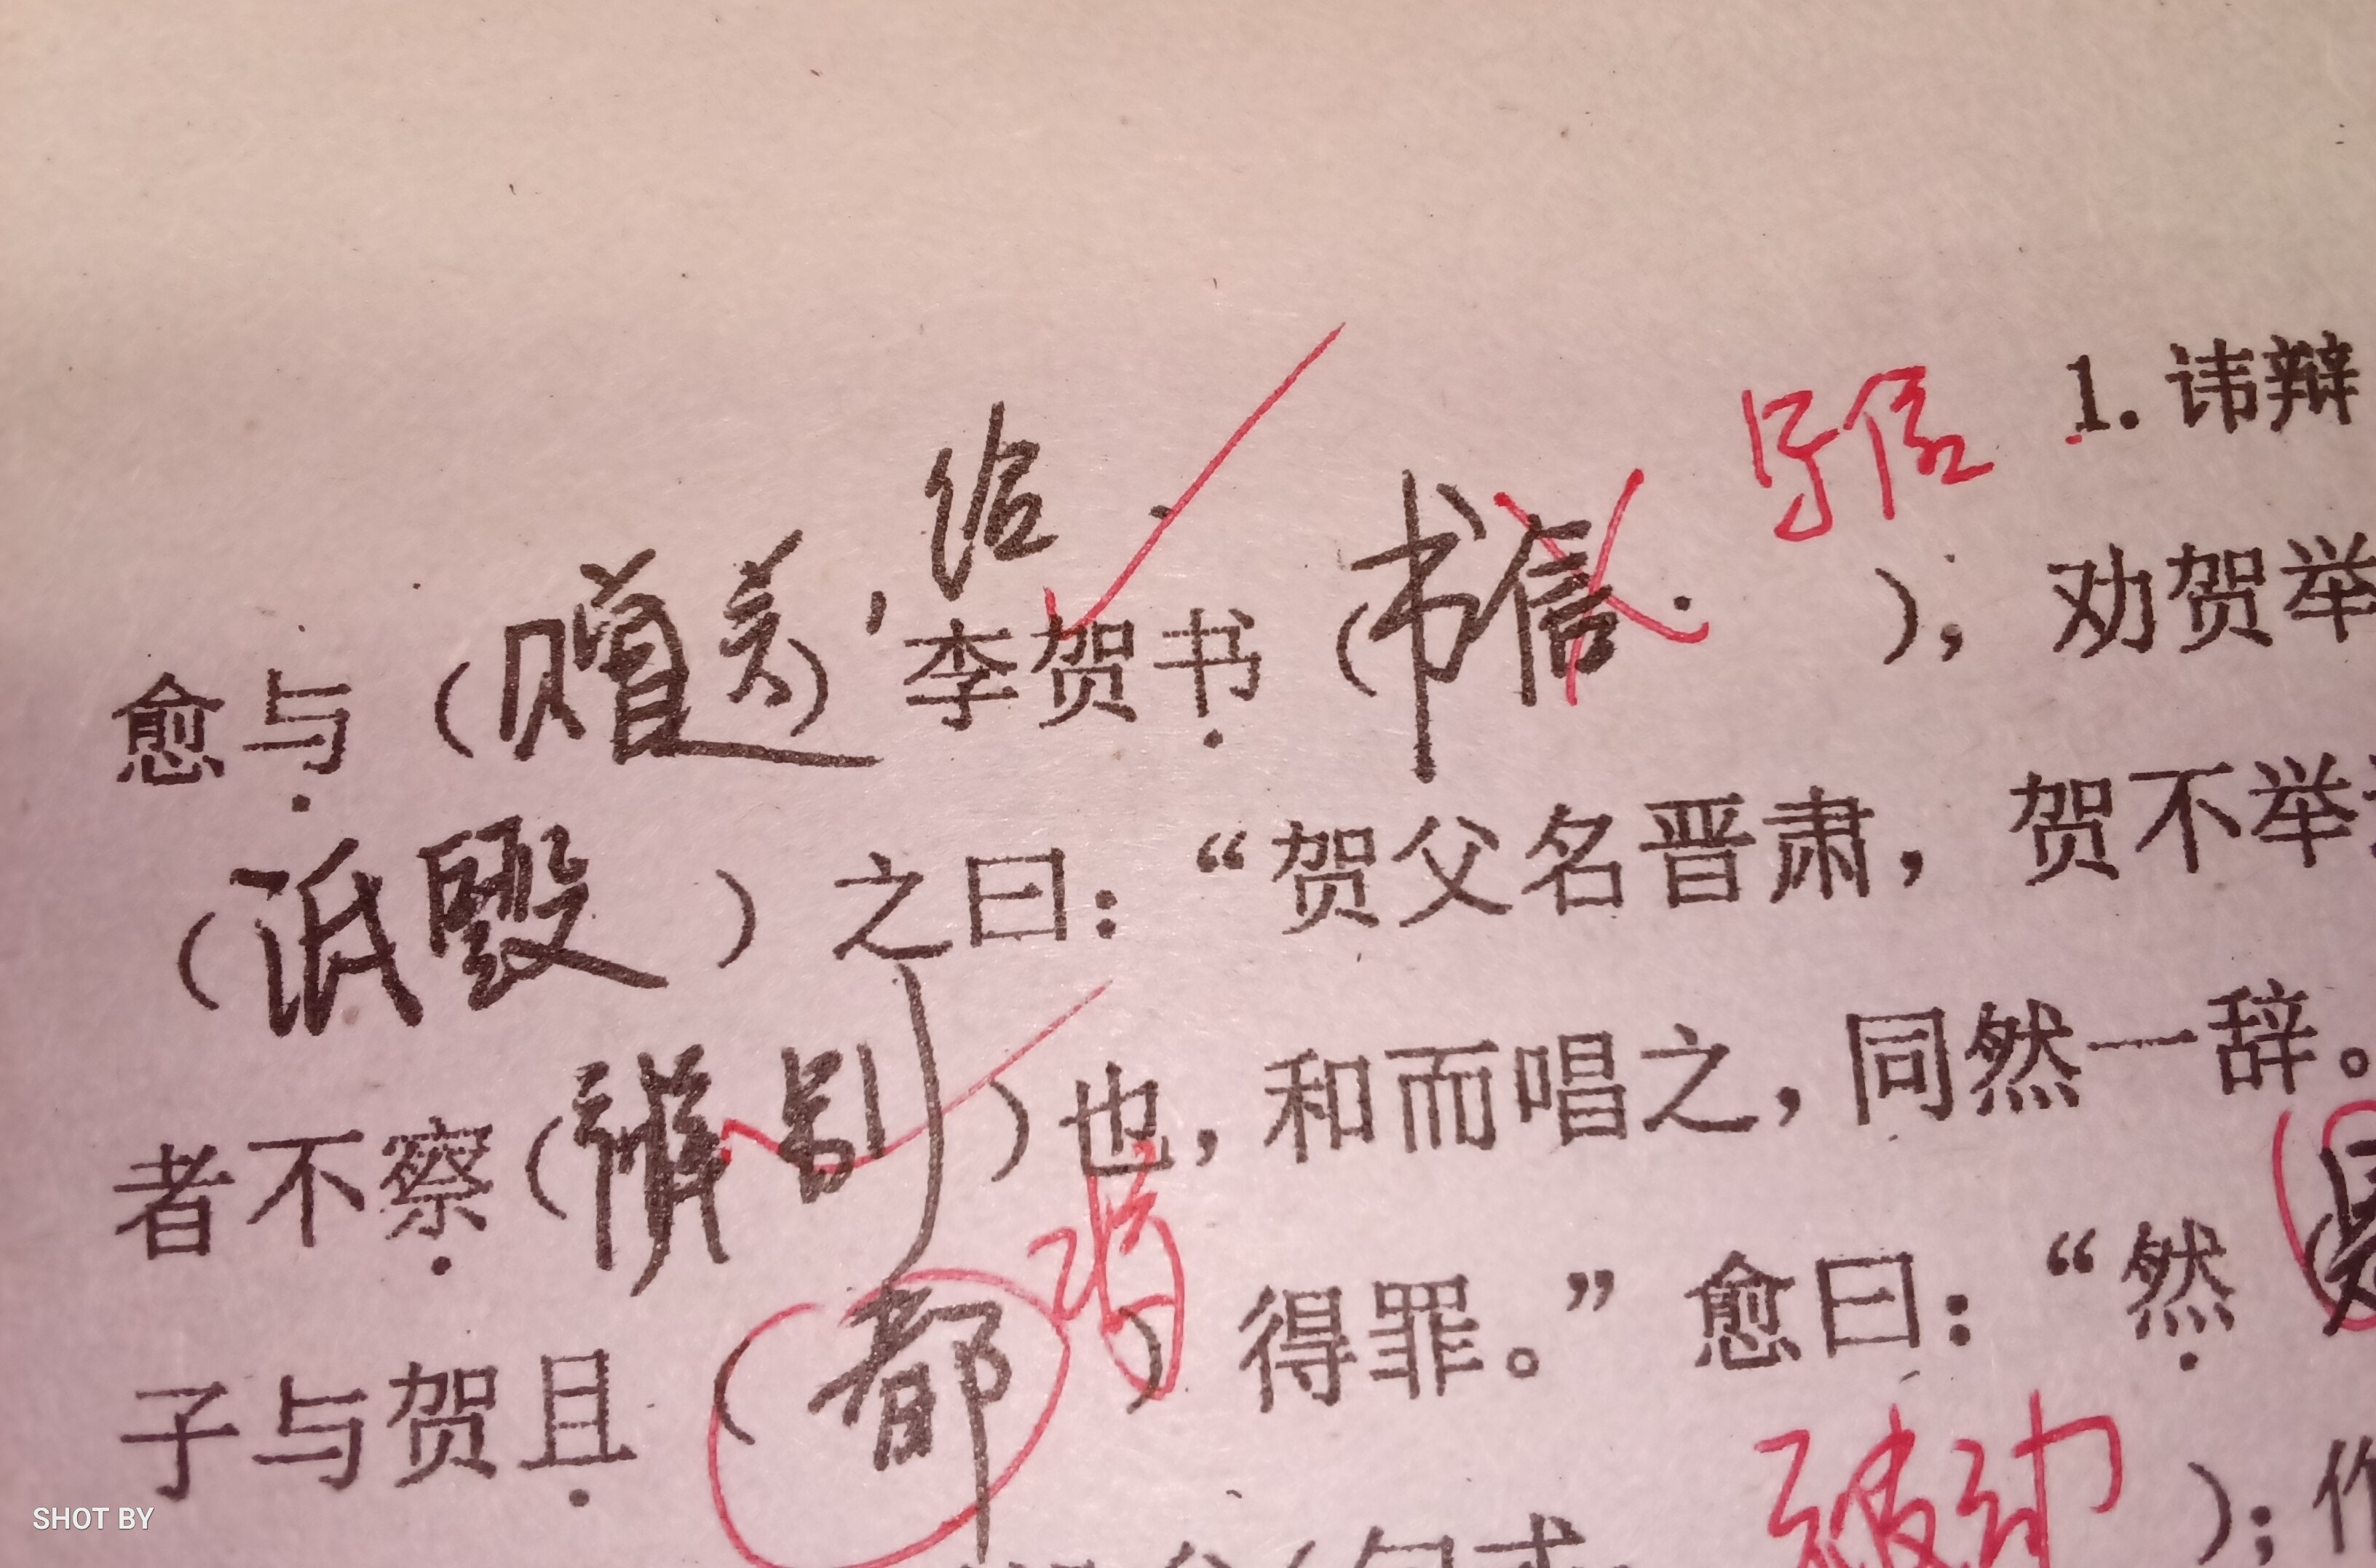 1. 讳辩
写信
给
愈与（赠送），李贺书（书信），劝贺举
（诋毁）之曰：“贺父名晋肃，贺不举
者不察（辨别）也，和而唱之，同然一辞。
将
子与贺且（都）得罪。”愈曰：“然
被动
）；作
SHOT BY